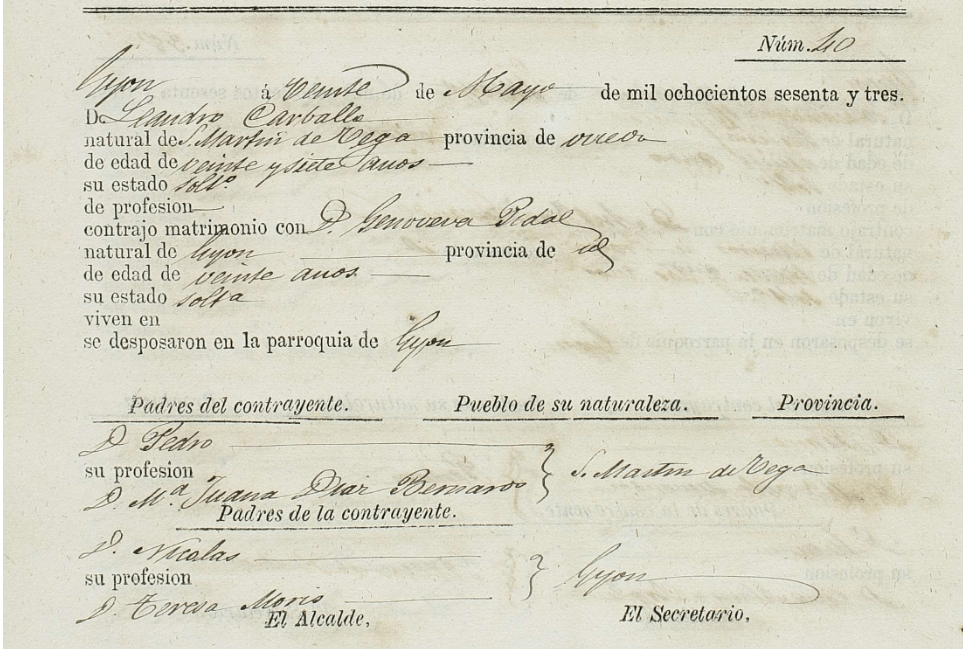 Núm. 40
Gyon á Veinte de Mayo de mil ochocientos sesenta y tres.
D. Leandro Carballo
natural de S. Martin de Vega provincia de oviedo
de edad de veinte y siete anos
su estado soltº
de profesion
contrajo matrimonio con D. Genoveva Pidal
natural de Gyon provincia de id
de edad de veinte anos
su estado solta
viven en
se desposaron en la parroquia de Gyon
Padres del contrayente. Pueblo de su naturaleza. Provincia.
D. Pedro
su profesion
D. Mª Juana Diaz Bernardo S. Martin de Vega
Padres de la contrayente.
D. Nicolas
su profesion Gyon
D. Teresa Moris
El Alcalde, El Secretario,